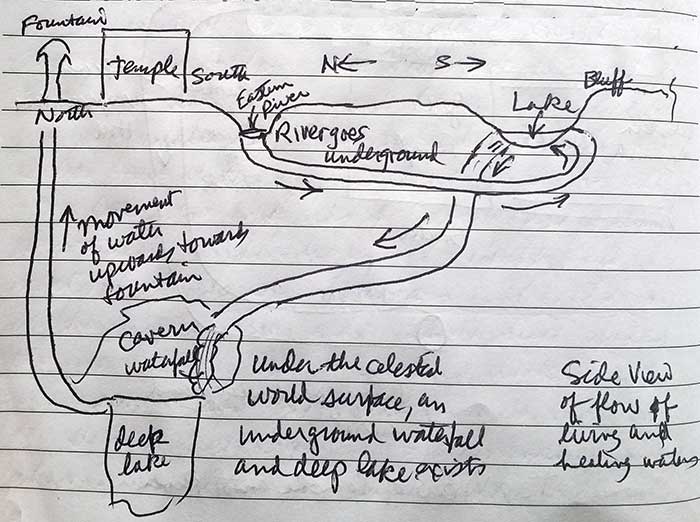 Fountain
Temple
North
South
N S
Eastern
River
River goes
underground
Lake
Bluff
movement
of water
upwards towards
fountain
Cavern
waterfall
deep
lake
under the celestial
world surface, an
underground waterfall
and deep lake exists
Side View
of flow of
living and
healing waters